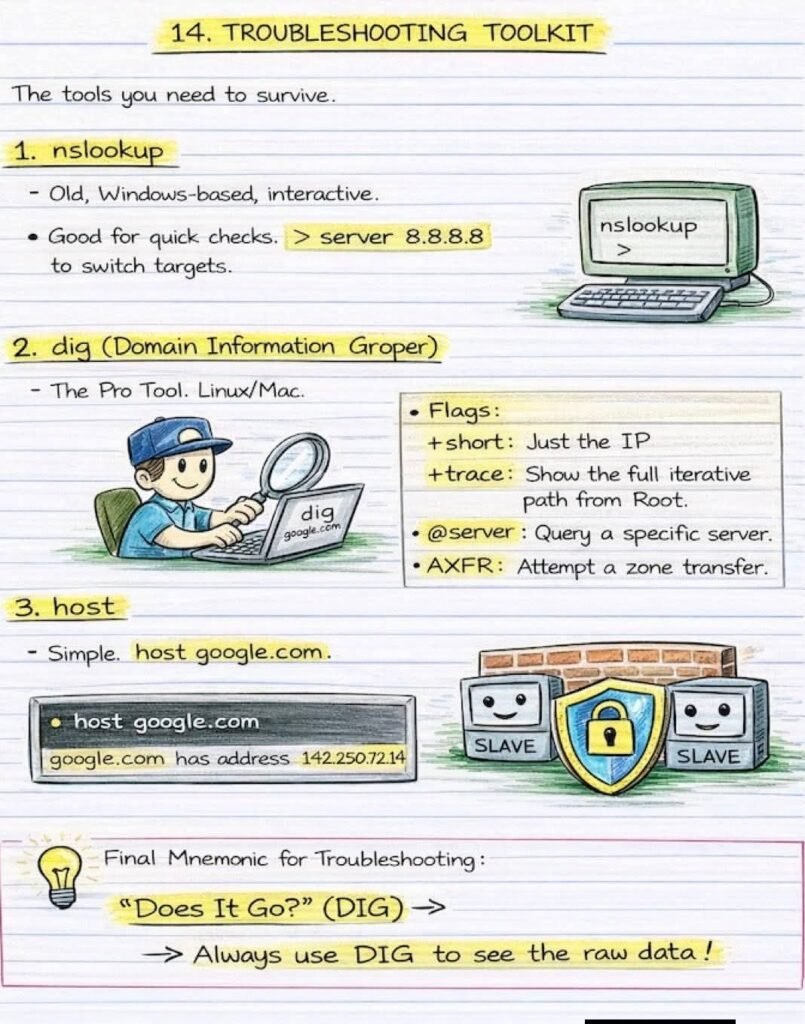 14. TROUBLESHOOTING TOOLKIT
The tools you need to survive.
1. nslookup
- Old, Windows-based, interactive.
• Good for quick checks. > server 8.8.8.8
to switch targets.
nslookup
>
2. dig (Domain Information Groper)
- The Pro Tool. Linux/Mac.
dig
google.com
• Flags:
+short: Just the IP
+trace: Show the full iterative
path from Root.
• @server: Query a specific server.
• AXFR: Attempt a zone transfer.
3. host
- Simple. host google.com.
• host google.com
google.com has address 142.250.72.14
SLAVE
SLAVE
Final Mnemonic for Troubleshooting:
"Does It Go?" (DIG) →
→ Always use DIG to see the raw data!